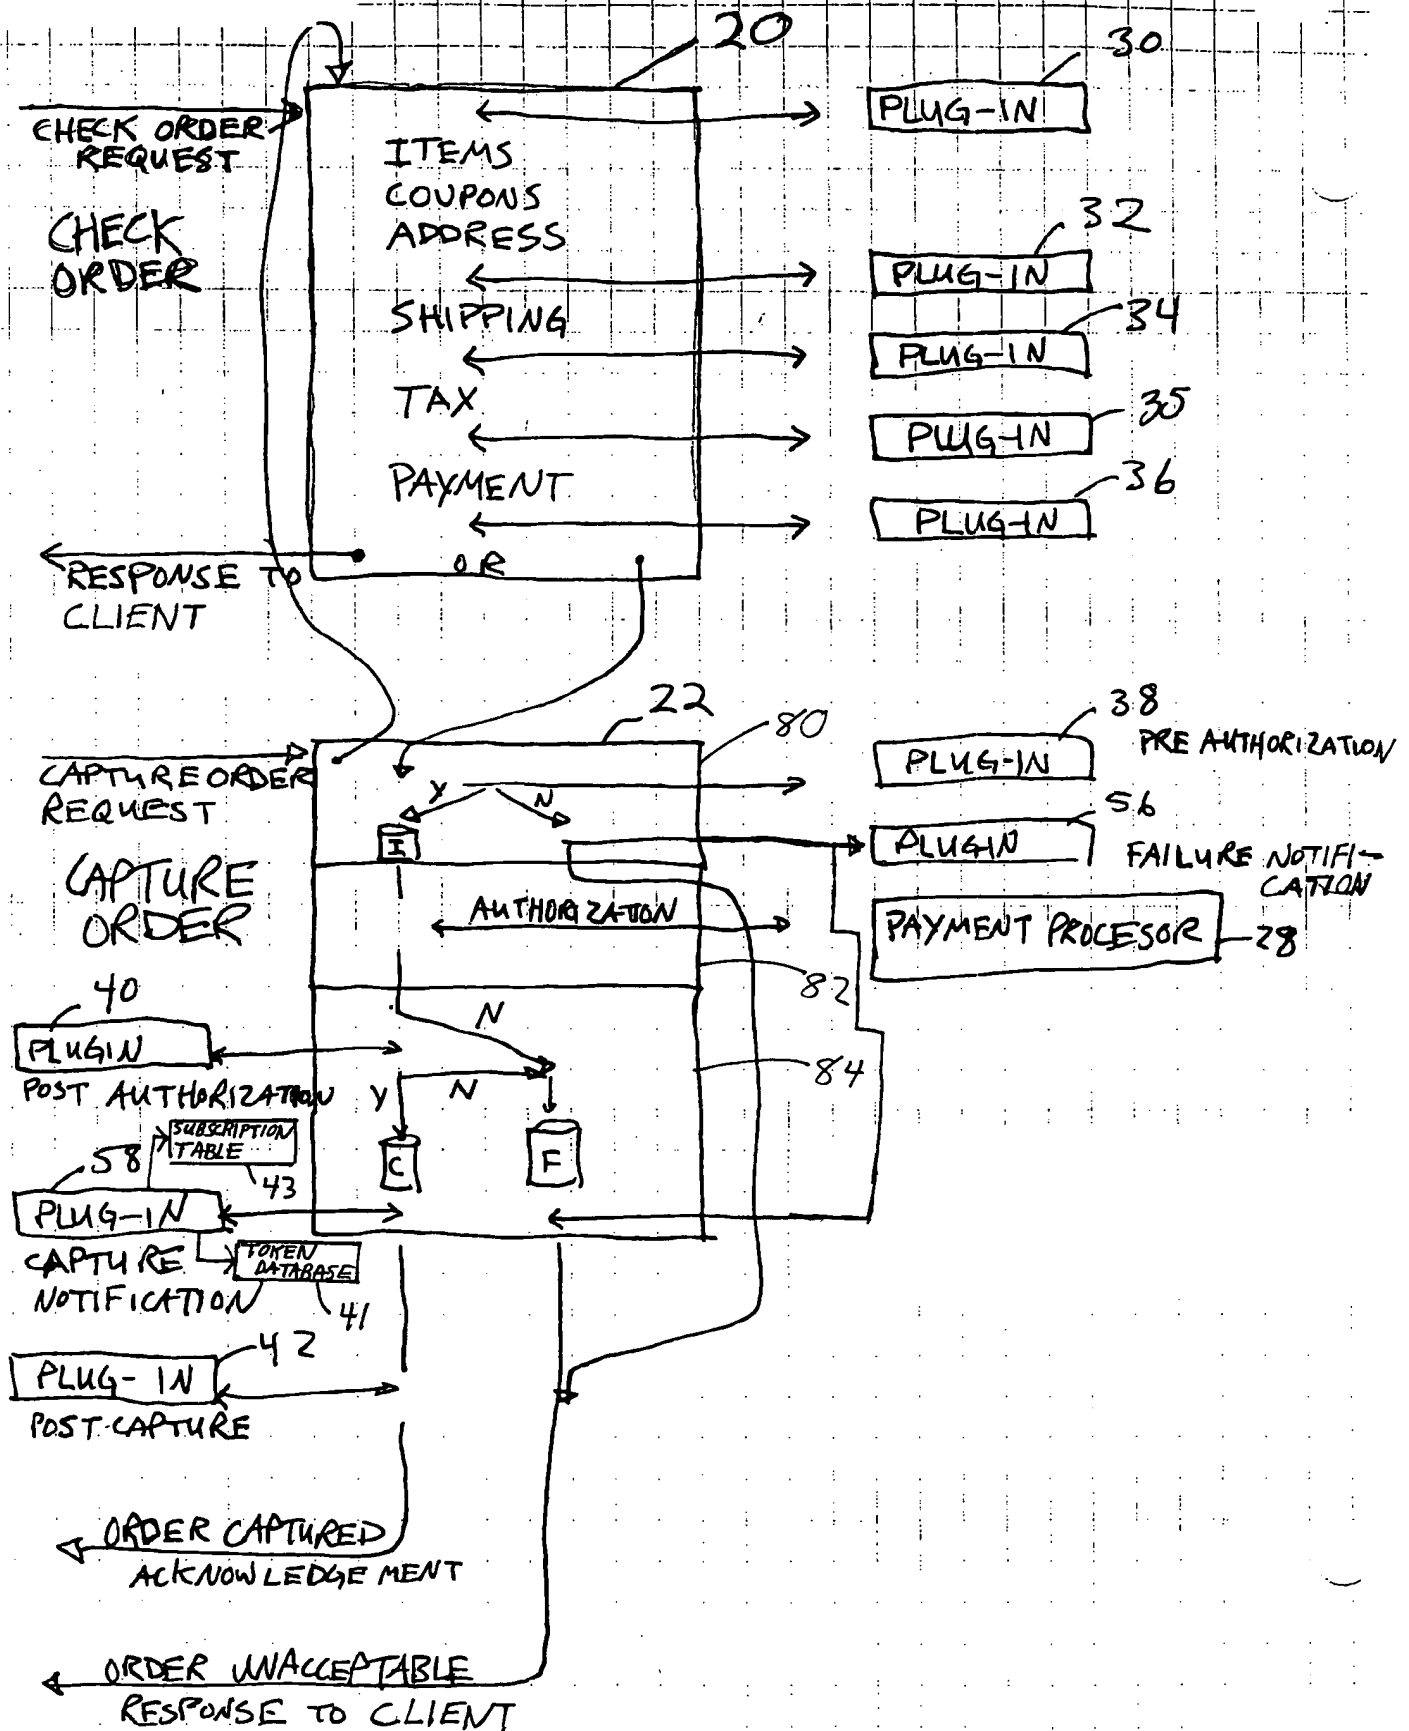 20
30
CHECK ORDER
REQUEST
PLUG-IN
ITEMS
COUPONS
ADDRESS
CHECK
ORDER
32
PLUG-IN
SHIPPING
34
PLUG-IN
TAX
35
PLUG-IN
PAYMENT
36
PLUG-IN
OR
RESPONSE TO
CLIENT
22
80
38
PRE AUTHORIZATION
PLUG-IN
CAPTURE ORDER
REQUEST
Y
N
I
56
PLUGIN
FAILURE NOTIFI-
CATION
CAPTURE
ORDER
AUTHORIZATION
PAYMENT PROCESOR
28
82
40
PLUGIN
N
POST AUTHORIZATION
Y
N
84
SUBSCRIPTION
TABLE
43
58
C
F
PLUG-IN
CAPTURE
NOTIFICATION
TOKEN
DATABASE
41
42
PLUG-IN
POST-CAPTURE
ORDER CAPTURED
ACKNOWLEDGEMENT
ORDER UNACCEPTABLE
RESPONSE TO CLIENT